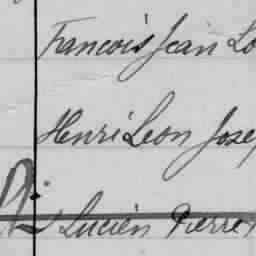 Francois Jean Lo
Henri Leon Jose
Lucien Pierre